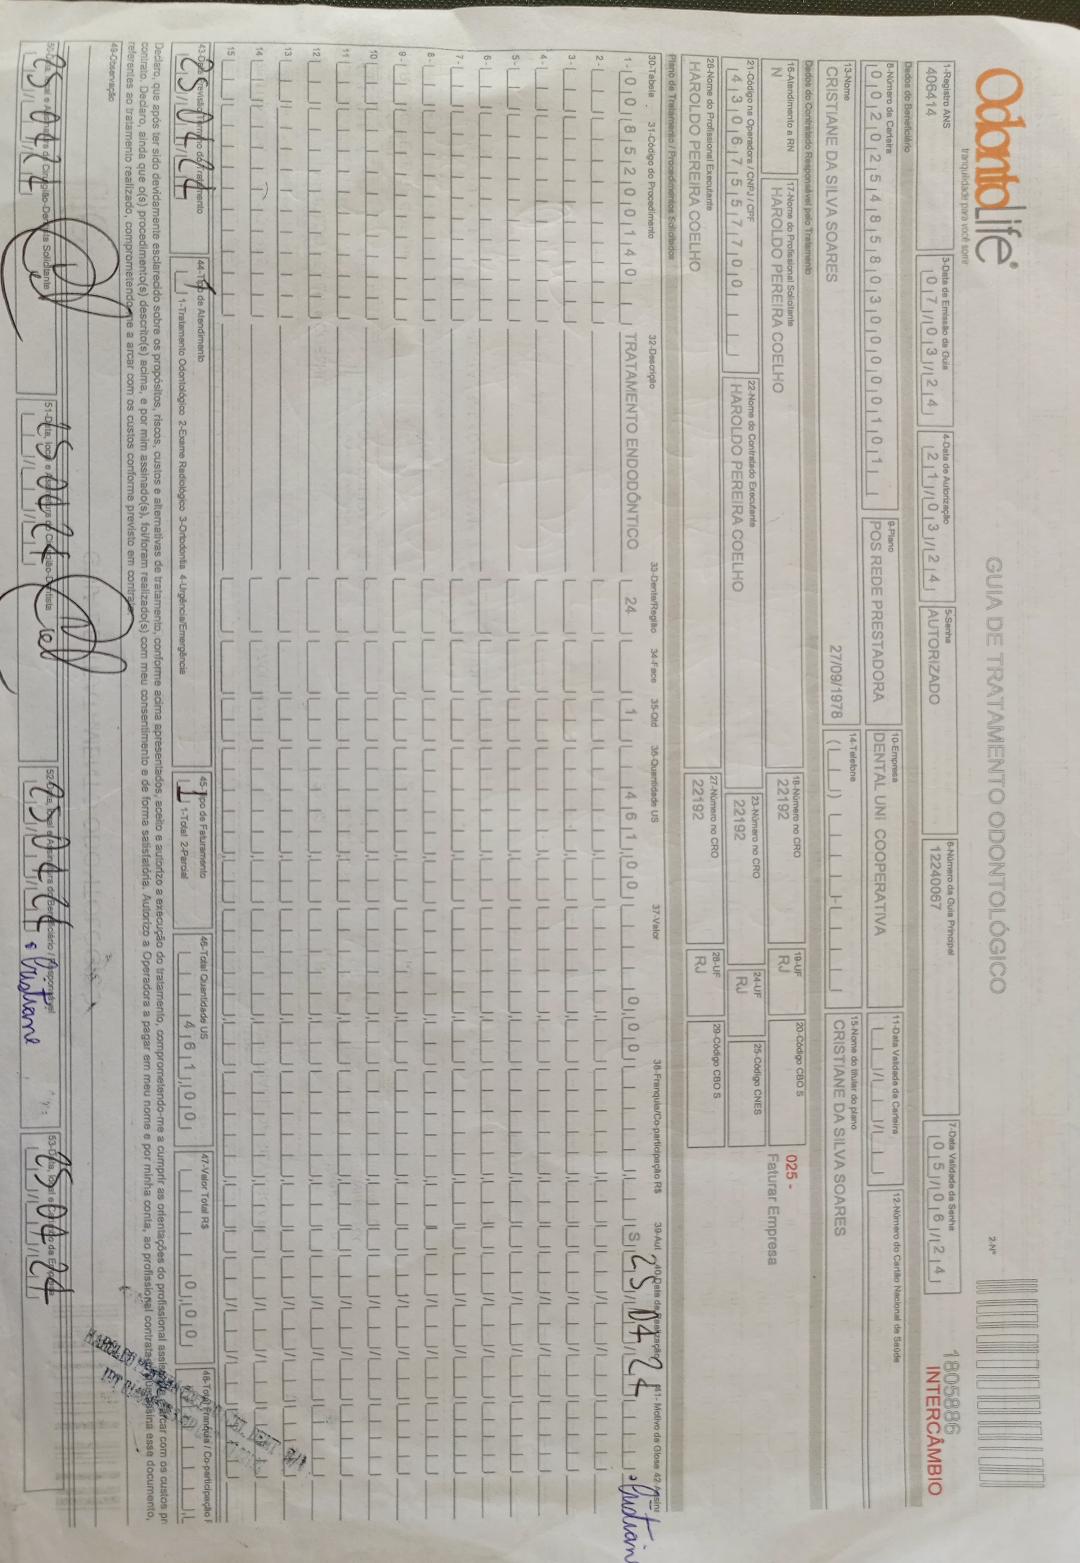 OdontoLife®
tranquilidade para você sorrir
GUIA DE TRATAMENTO ODONTOLÓGICO
2-Nº
1805886
INTERCÂMBIO
1-Registro ANS
406414
3-Data de Emissão da Guia
07/03/24
4-Data de Autorização
21/03/24
5-Senha
AUTORIZADO
6-Número da Guia Principal
12240067
7-Data Validade da Senha
05/06/24
Dados do Beneficiário
8-Número da Carteira
00202548580300000101
9-Plano
POS REDE PRESTADORA
10-Empresa
DENTAL UNI COOPERATIVA
11-Data Validade da Carteira
12-Número do Cartão Nacional de Saúde
13-Nome
CRISTIANE DA SILVA SOARES
27/09/1978
14-Telefone
15-Nome do titular do plano
CRISTIANE DA SILVA SOARES
Dados do Contratado Responsável pelo Tratamento
16-Atendimento a RN
N
17-Nome do Profissional Solicitante
HAROLDO PEREIRA COELHO
18-Número no CRO
22192
19-UF
RJ
20-Código CBO S
025 -
Faturar Empresa
21-Código na Operadora / CNPJ / CPF
43067557700
22-Nome do Contratado Executante
HAROLDO PEREIRA COELHO
23-Número no CRO
22192
24-UF
RJ
25-Código CNES
26-Nome do Profissional Executante
HAROLDO PEREIRA COELHO
27-Número no CRO
22192
28-UF
RJ
29-Código CBO S
Plano de Tratamento / Procedimentos Solicitados
30-Tabela 31-Código do Procedimento 32-Descrição 33-Dente/Região 34-Face 35-Qtd 36-Quantidade US 37-Valor 38-Franquia/Co-participação R$ 39-Aut 40-Data de Realização 41- Motivo da Glosa 42
1- 00 85200140 TRATAMENTO ENDODÔNTICO 24 1 461,00 0,00 S 25 04 24 Cristiane
2-
3-
4-
5-
6-
7-
8-
9-
10
11
12
13
14
15
25 04 24
44-Tipo de Atendimento
1-Tratamento Odontológico 2-Exame Radiológico 3-Ortodontia 4-Urgência/Emergência
45-Tipo de Faturamento
1 1-Total 2-Parcial
46-Total Quantidade US
461,00
47-Valor Total R$
0,00
48-Total Franquia / Co-participação
Declaro, que após ter sido devidamente esclarecido sobre os propósitos, riscos, custos e alternativas de tratamento, conforme acima apresentados, aceito e autorizo a execução do tratamento, comprometendo-me a cumprir as orientações do profissional
contrato. Declaro, ainda que o(s) procedimento(s) descrito(s) acima, e por mim assinado(s), foi/foram realizado(s) com meu consentimento e de forma satisfatória. Autorizo a Operadora a pagar em meu nome e por minha conta, ao profissional
referentes ao tratamento realizado, comprometendo-me a arcar com os custos conforme previsto em contrato.
49-Observação
25 04 24
25 04 24
25 04 24 Cristiane
25 04 24